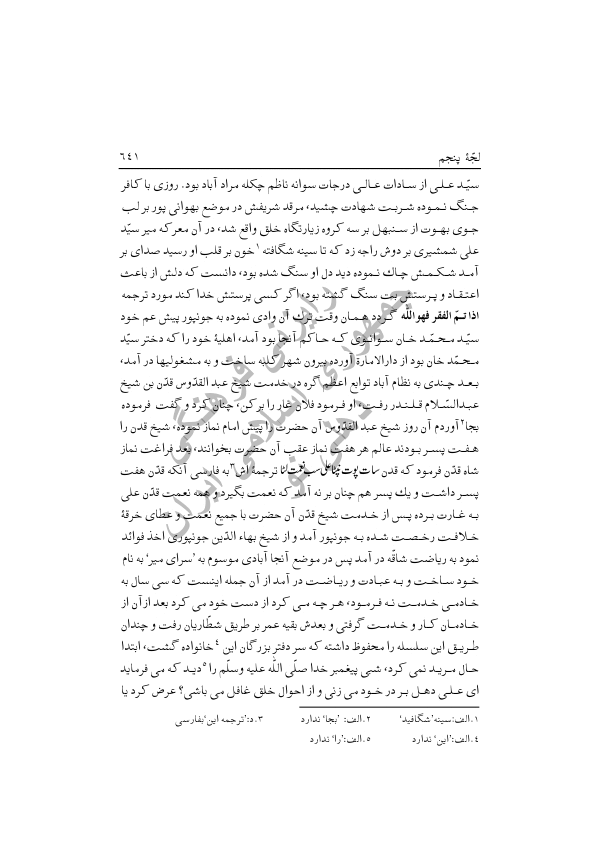 لجّهٔ پنجم ٦٤١
سیّد علی از سادات عالی درجات سوانه ناظم چکله مراد آباد بود. روزی با کافر
جنگ نموده شربت شهادت چشید، مرقد شریفش در موضع بهوانی پور بر لب
جوی بهوت از سنبهل بر سه کروه زیارتگاه خلق واقع شد، در آن معرکه میر سیّد
علی شمشیری بر دوش راجه زد که تا سینه شگافته ١ خون بر قلب او رسید صدای بر
آمد شکمش چاك نموده دید دل او سنگ شده بود، دانست که دلش از باعث
اعتقاد و پرستش بت سنگ گشته بود، اگر کسی پرستش خدا کند مورد ترجمه
اذا تمّ الفقر فهو اللّه گردد همان وقت ترك آن وادی نموده به جونپور پیش عم خود
سیّد محمّد خان سوانوی که حاکم آنجا بود آمد، اهلیهٔ خود را که دختر سیّد
محمّد خان بود از دارالامارة آورده بیرون شهر کلبه ساخت و به مشغولیها در آمد،
بعد چندی به نظام آباد توابع اعظم گره در خدمت شیخ عبد القدّوس قدّن بن شیخ
عبدالسّلام قلندر رفت، او فرمود فلان غار را بر کن، چنان کرد و گفت فرموده
بجا ٢ آوردم آن روز شیخ عبد القدّوس آن حضرت را پیش امام نماز نموده، شیخ قدن را
هفت پسر بودند عالم هر هفت نماز عقب آن حضرت بخوانند، بعد فراغت نماز
شاه قدّن فرمود که قدن سات پوت علی سب نعمت ترجمهٔ اش ٣ به فارسی آنکه قدّن هفت
پسر داشت و یك پسر هم چنان بر نه آمد که نعمت بگیرد و همه نعمت قدّن علی
به غارت برده پس از خدمت شیخ قدّن آن حضرت با جمیع نعمت و عطای خرقهٔ
خلافت رخصت شده به جونپور آمد و از شیخ بهاء الدّین جونپوری اخذ فوائد
نمود به ریاضت شاقّه در آمد پس در موضع آنجا آبادی موسوم به 'سرای میر' به نام
خود ساخت و به عبادت و ریاضت در آمد از آن جمله اینست که سی سال به
خادمی خدمت نه فرمود، هر چه می کرد از دست خود می کرد بعد از آن از
خادمان کار و خدمت گرفتی و بعدش بقیه عمر بر طریق شطّاریان رفت و چندان
طریق این سلسله را محفوظ داشته که سر دفتر بزرگان این ٤ خانواده گشت، ابتدا
حال مرید نمی کرد، شبی پیغمبر خدا صلّی اللّه علیه وسلّم را ٥ دید که می فرماید
ای علی دهل بر در خود می زنی و از احوال خلق غافل می باشی؟ عرض کرد یا
١.الف:سینه'شگافید' ٢.الف: 'بجا' ندارد ٣.د:'ترجمه این'بفارسی
٤.الف:'این' ندارد ٥.الف:'را' ندارد
جمهوری اسلامی ایران
رایزنی فرهنگی
دهلی نو